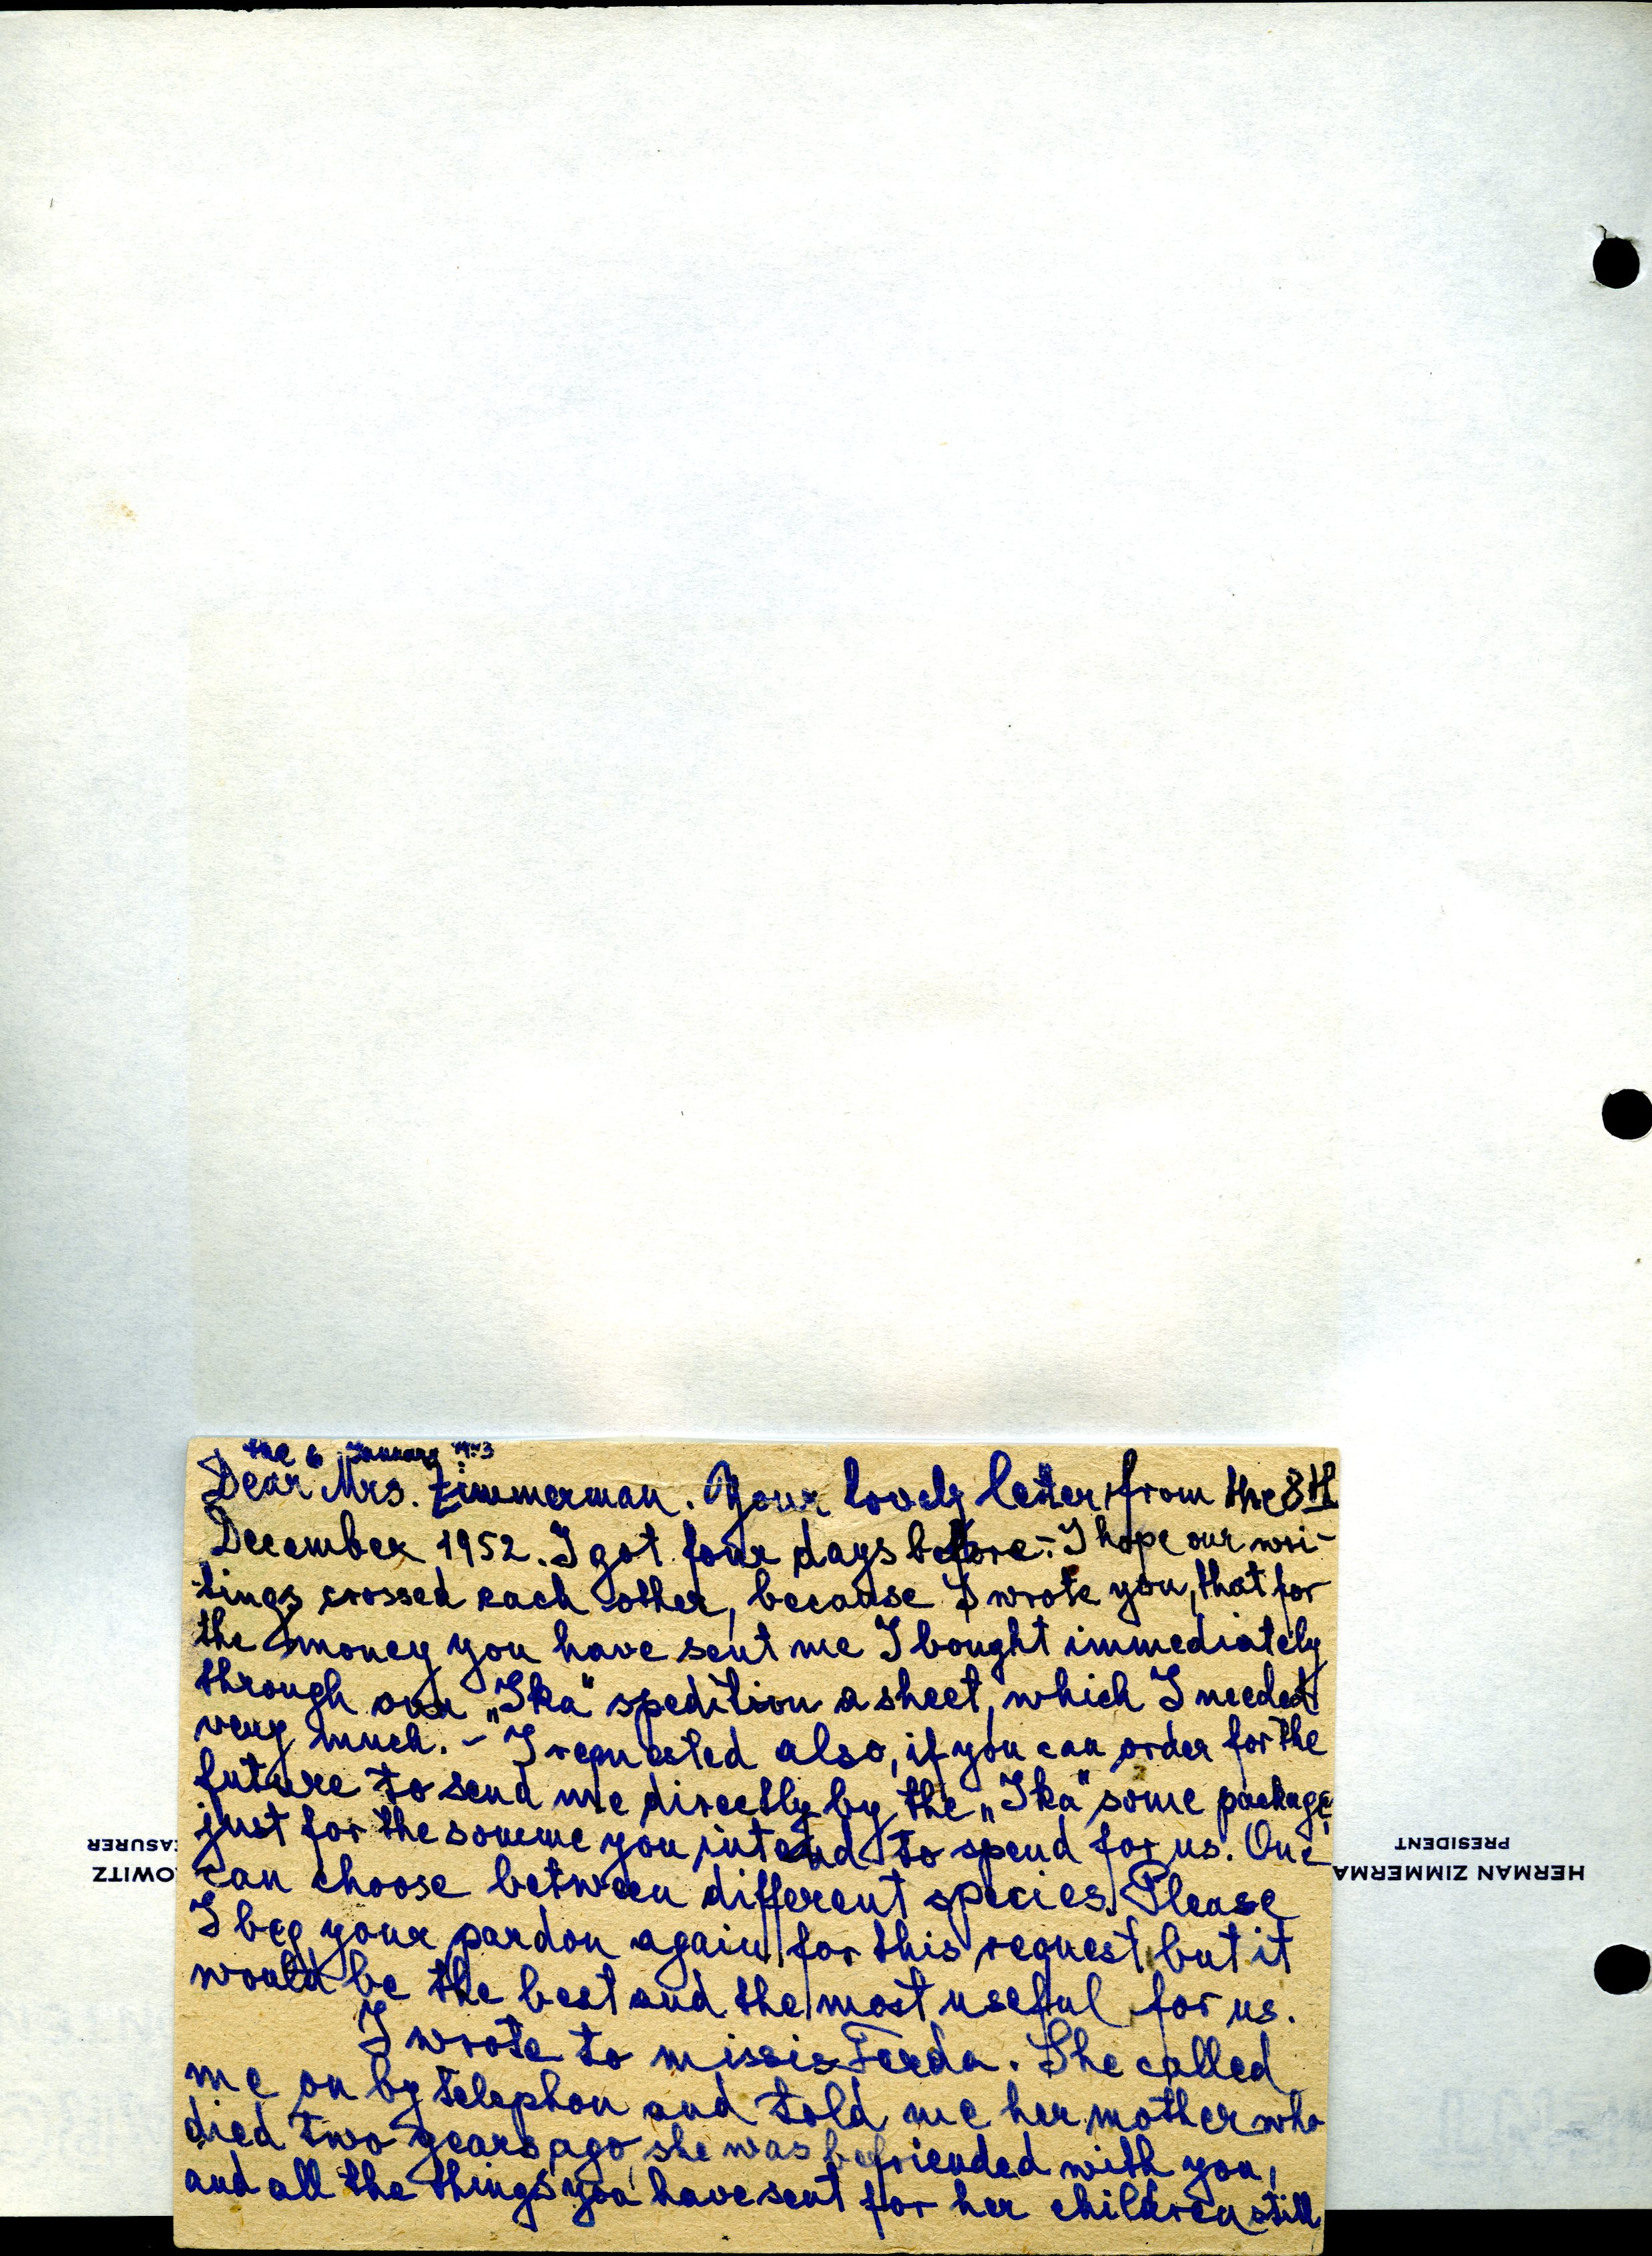 the 6 January 1953
Dear Mrs. Zimmerman. Your lovely letter from the 8th
December 1952. I got four days before. - I hope our wri-
tings crossed each other, because I wrote you, that for
the money you have sent me I bought immediately
through our „Ika“ spedition a sheet, which I needed
very much. - I requested also, if you can order for the
future to send me directly by the „Ika“ some package
just for the somme you intend to spend for us. One
can choose between different species. Please
I beg your pardon again for this request, but it
would be the best and the most useful for us.
I wrote to missis Ferda. She called
me on by telephon and told me her mother who
died two years ago, she was befriended with you,
and all the things you have sent for her children still
HERMAN ZIMMERMA
PRESIDENT
OWITZ
EASURER